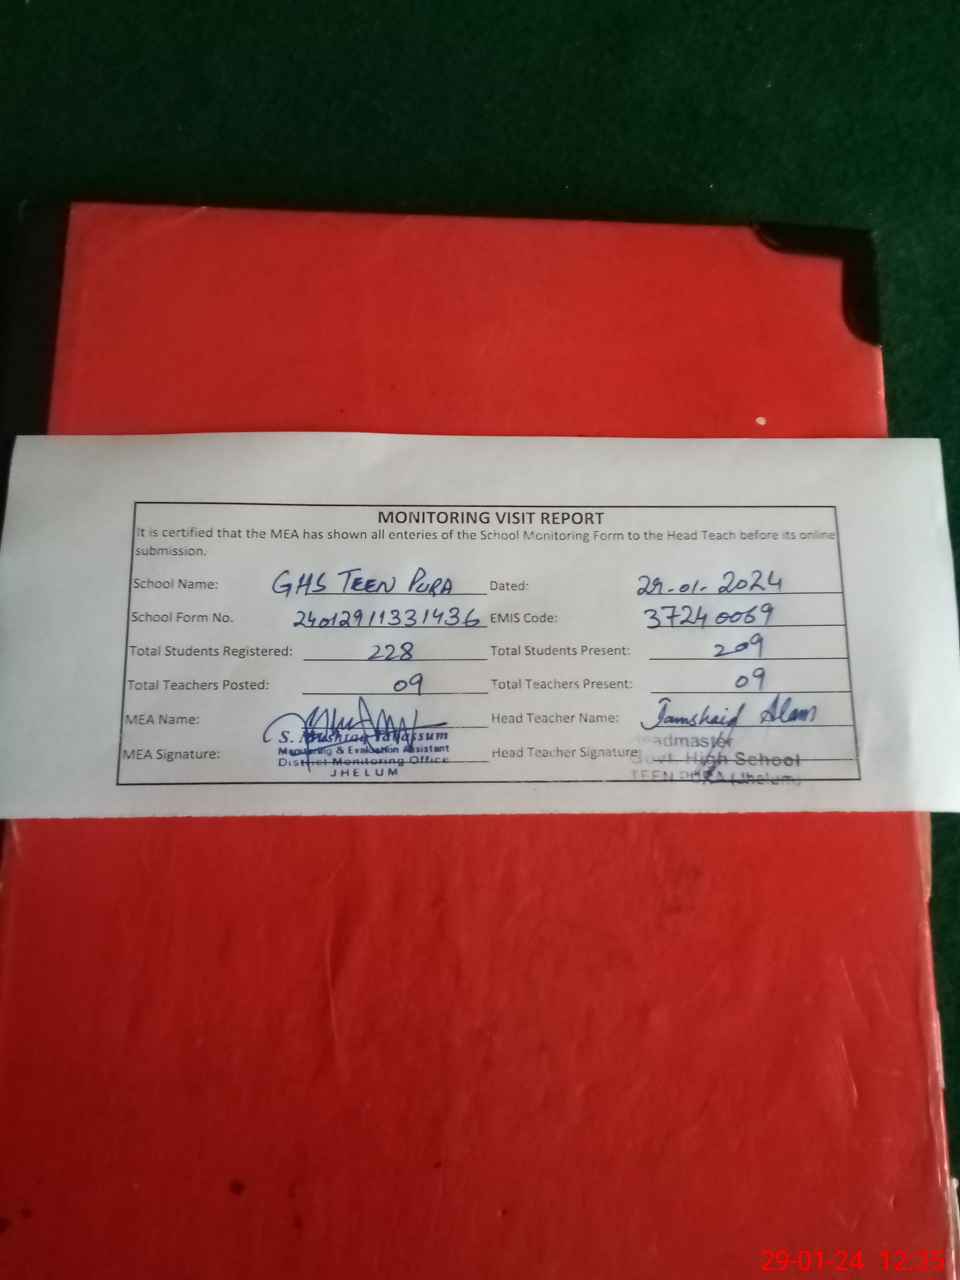 MONITORING VISIT REPORT
It is certified that the MEA has shown all enteries of the School Monitoring Form to the Head Teach before its online
submission.
School Name: GHS TEEN PURA Dated: 29-01-2024
School Form No. 24012911331436 EMIS Code: 37240069
Total Students Registered: 228 Total Students Present: 209
Total Teachers Posted: 09 Total Teachers Present: 09
MEA Name: Head Teacher Name: Jamshaid Alam
S. Tabassum
MEA Signature: Monitoring & Evaluation Assistant Head Teacher Signature: Headmaster
District Monitoring Office Govt. High School
JHELUM TEEN PURA (Jhelum)
29-01-24 12:25